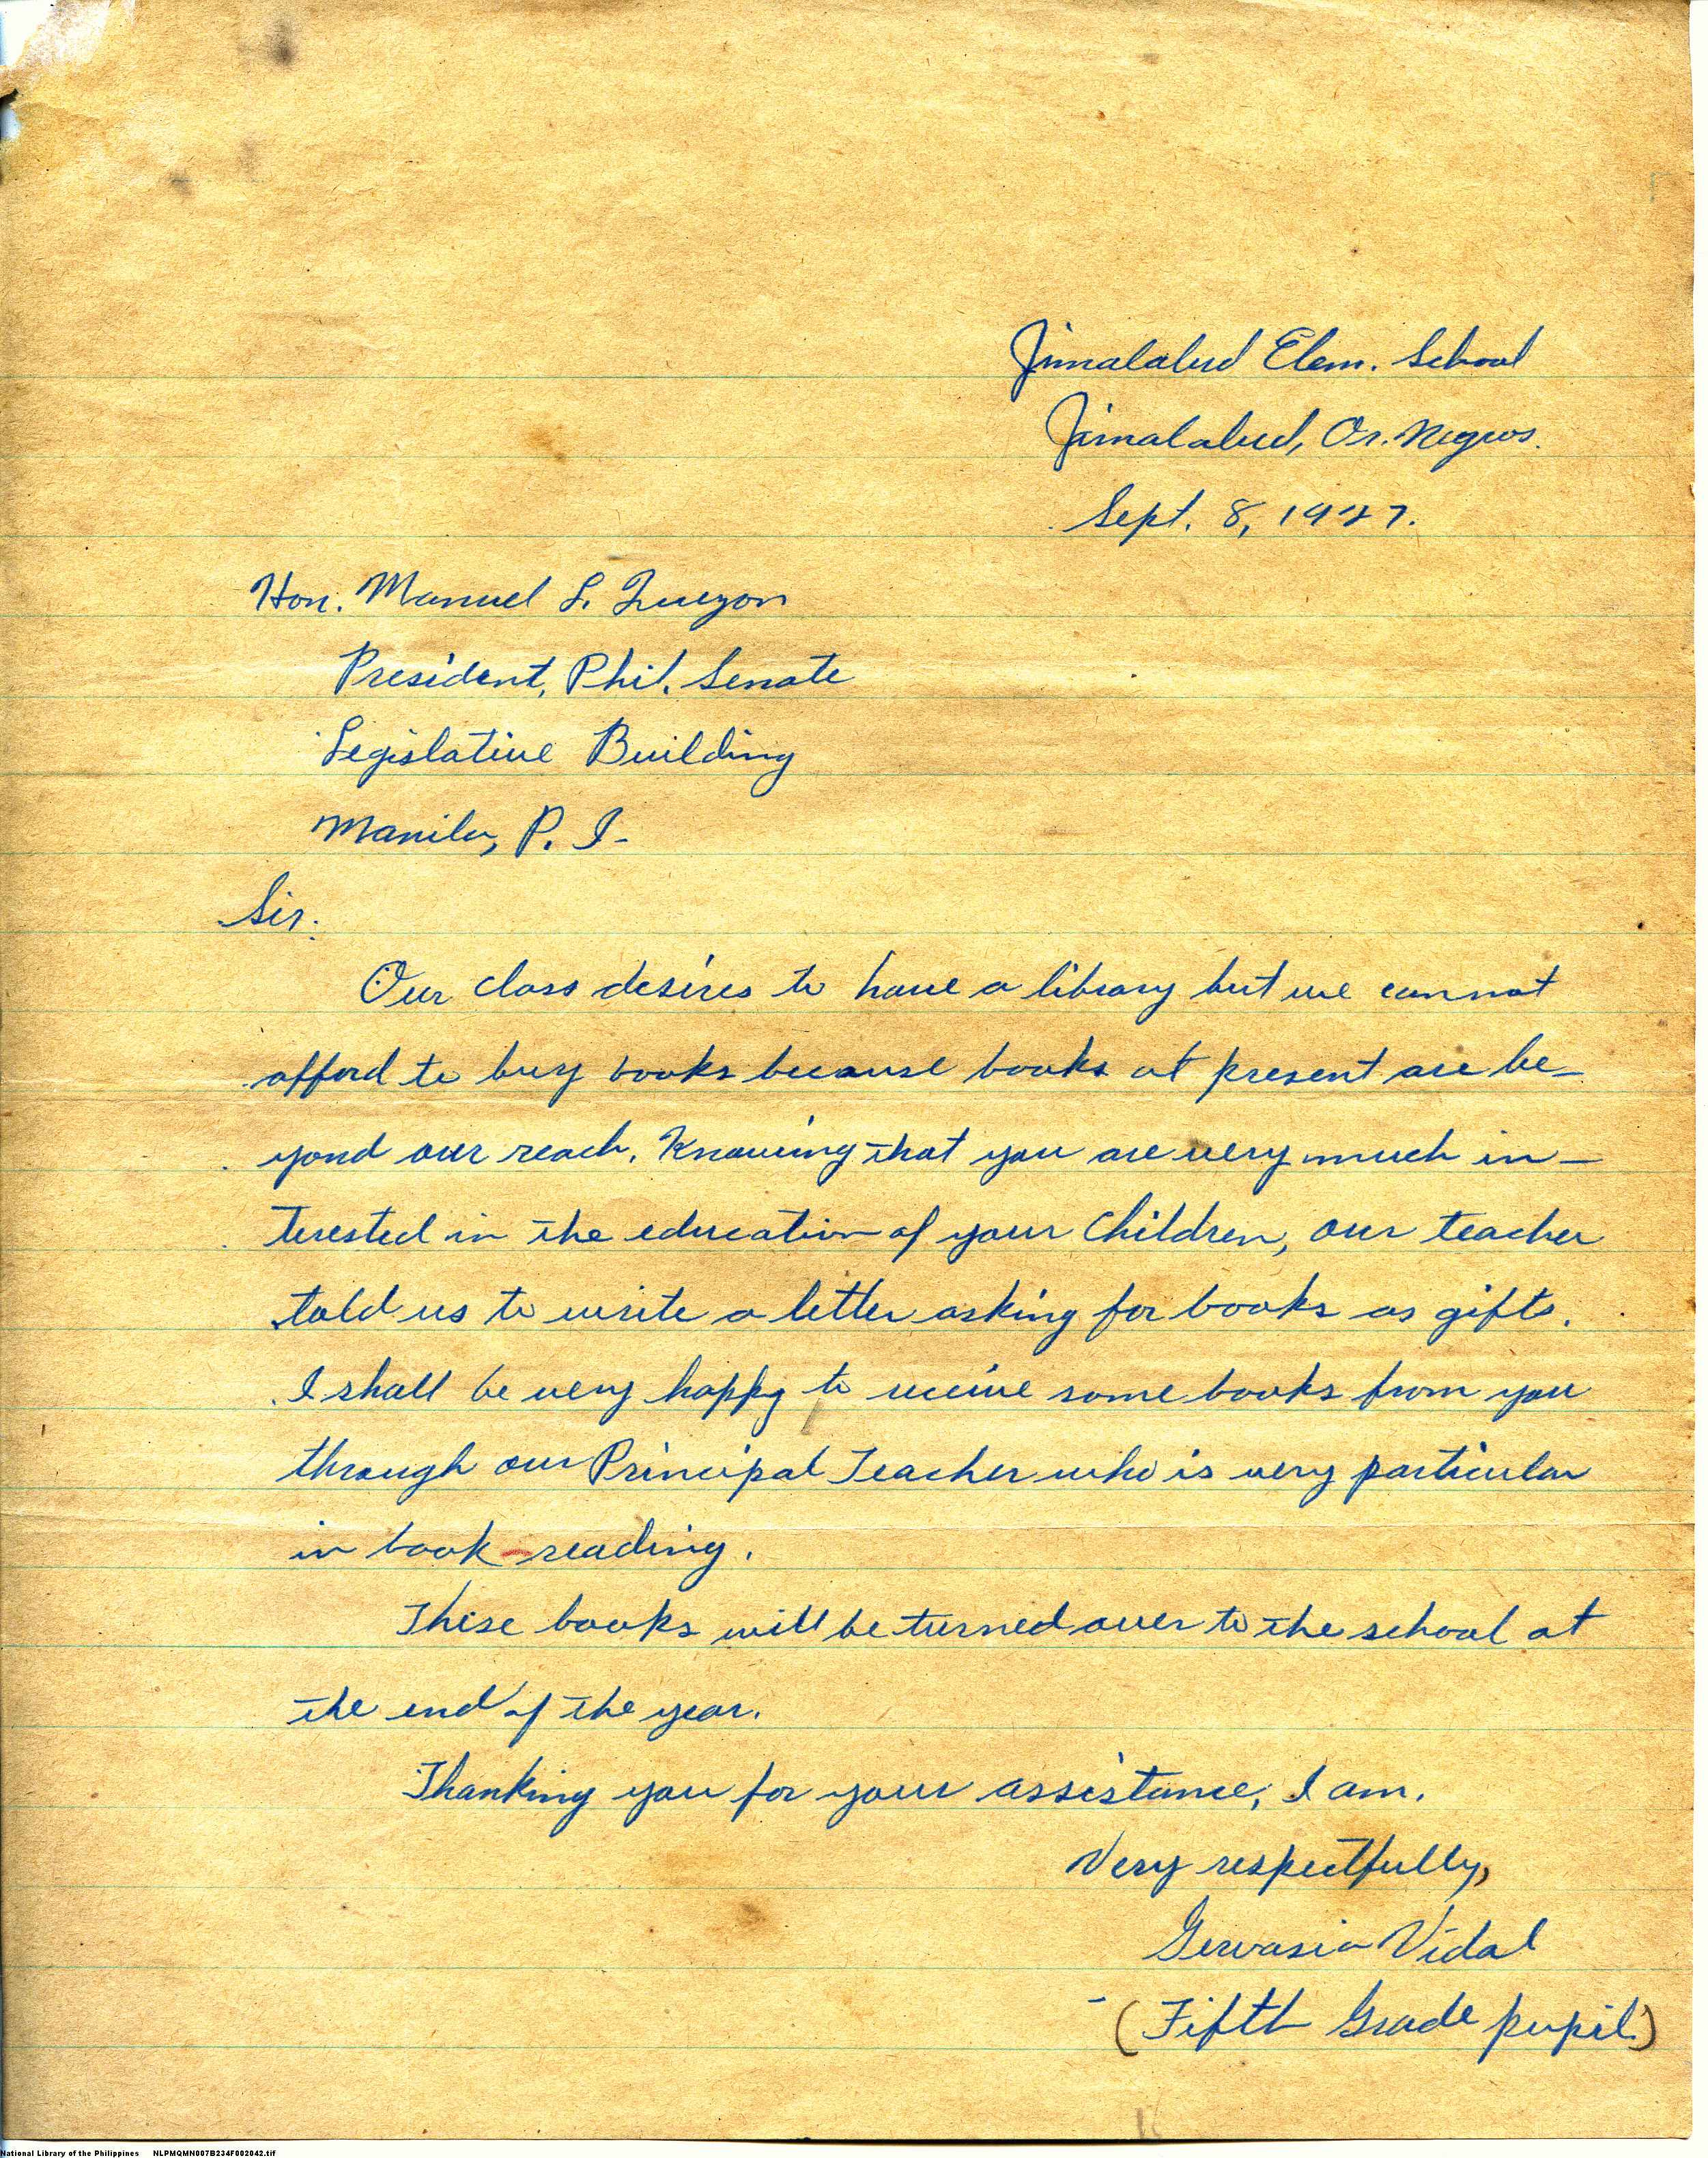 Jimalalud Elem. School
Jimalalud, Or. Negros.
Sept. 8, 1927.
Hon. Manuel L. Quezon
President, Phil. Senate
Legislative Building
Manila, P. I.
Sir:
Our class desires to have a library but we cannot
afford to buy books because books at present are be-
yond our reach. Knowing that you are very much in-
terested in the education of your children, our teacher
told us to write a letter asking for books as gifts.
I shall be very happy to receive some books from you
through our Principal Teacher who is very particular
in book-reading.
These books will be turned over to the school at
the end of the year.
Thanking you for your assistance, I am.
Very respectfully,
Gervasia Vidal
(Fifth Grade pupil)
National Library of the Philippines NLPMQMN007B234F002042.tif